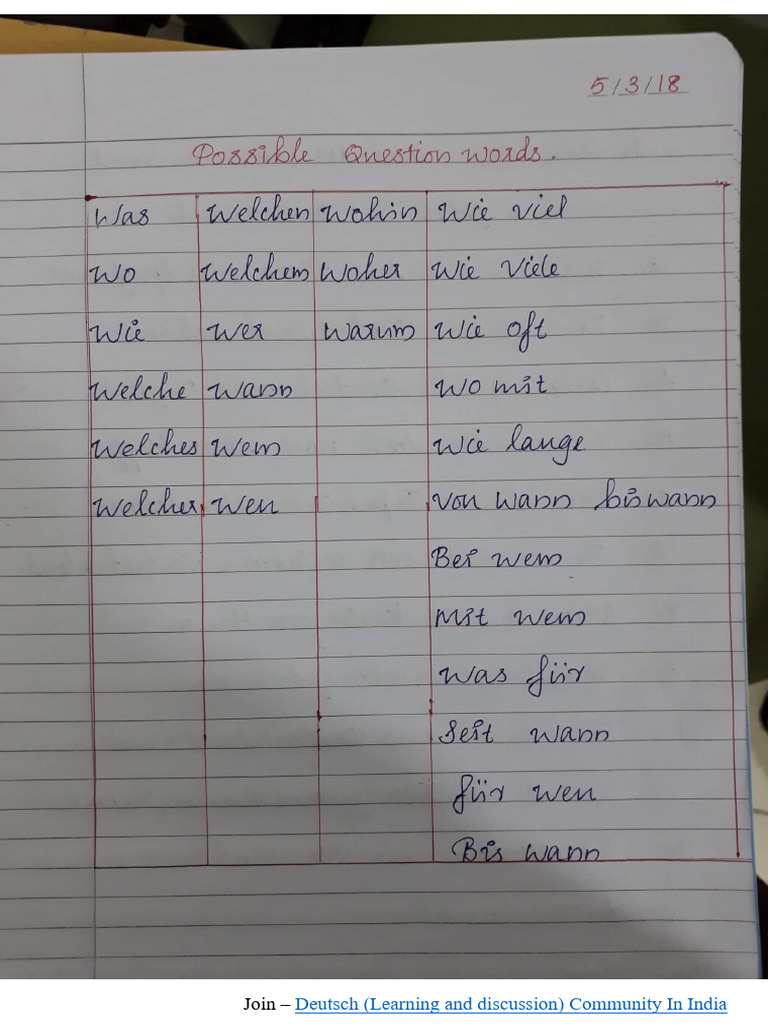 5/3/18
Possible Question words.
Was Welchen Wohin Wie viel
Wo Welchem Woher Wie Viele
Wie Wer Warum Wie oft
Welche Wann Wo mit
Welches Wem Wie lange
Welcher Wen Von Wann bis wann
Bei wem
Mit wem
Was für
Seit wann
für wen
Bis wann
Join – Deutsch (Learning and discussion) Community In India